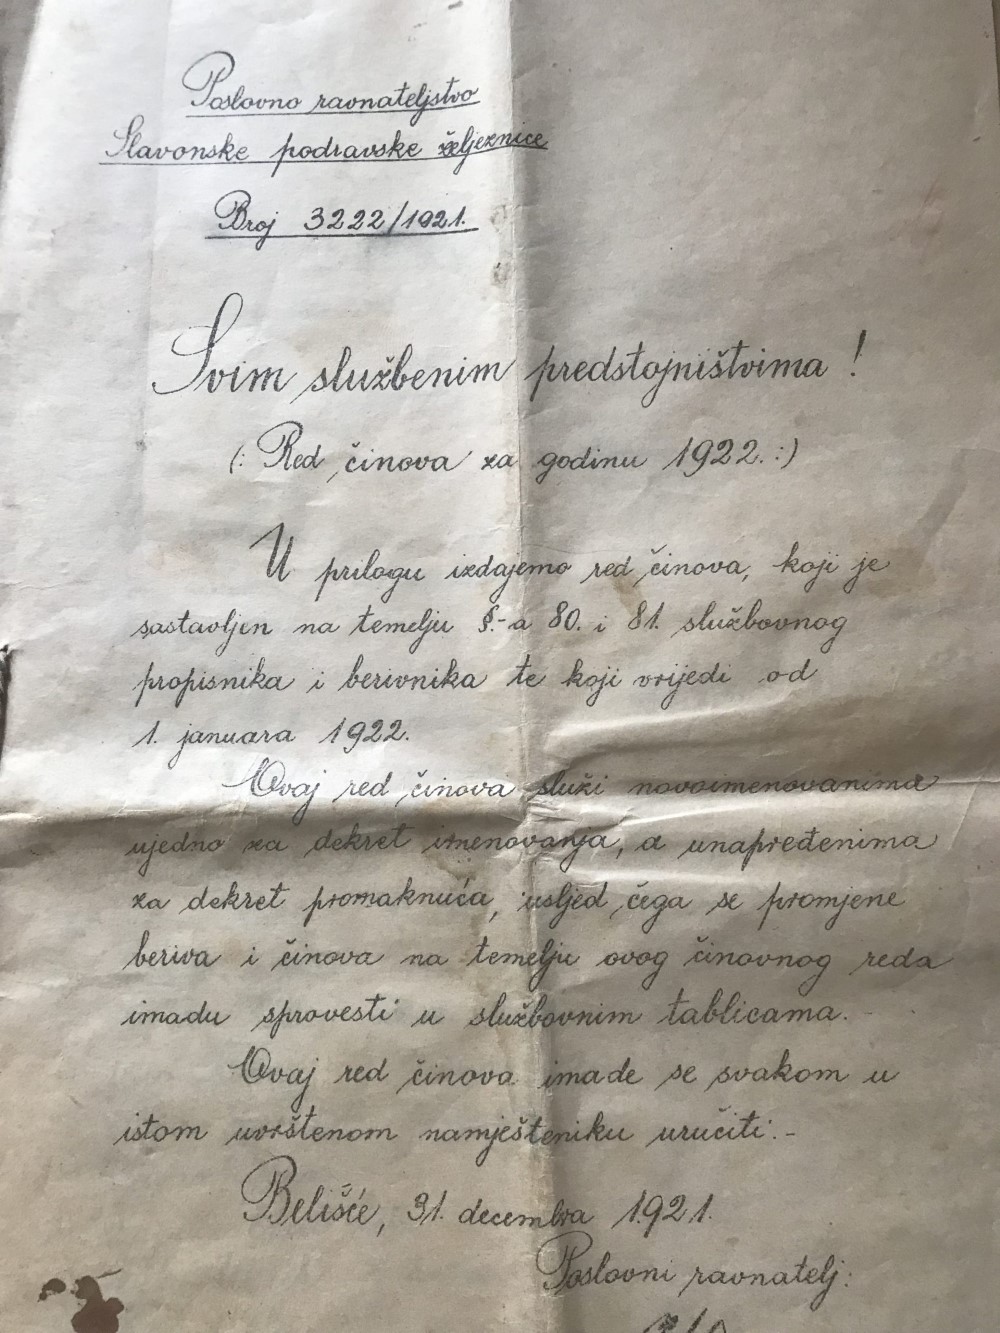 Poslovno ravnateljstvo
Slavonske podravske željeznice
Broj 3222/1921.
Svim službenim predstojništvima!
(: Red činova za godinu 1922. :)
U prilogu izdajemo red činova, koji je
sastavljen na temelju §.-a 80. i 81. službovnog
propisnika i berivnika te koji vrijedi od
1. januara 1922.
Ovaj red činova služi novoimenovanima
ujedno za dekret imenovanja, a unapređenima
za dekret promaknuća, usljed čega se promjene
beriva i činova na temelju ovog činovnog reda
imadu sprovesti u službovnim tablicama. -
Ovaj red činova imade se svakom u
istom uvrštenom namješteniku uručiti. -
Belišće, 31. decembra 1921.
Poslovni ravnatelj: